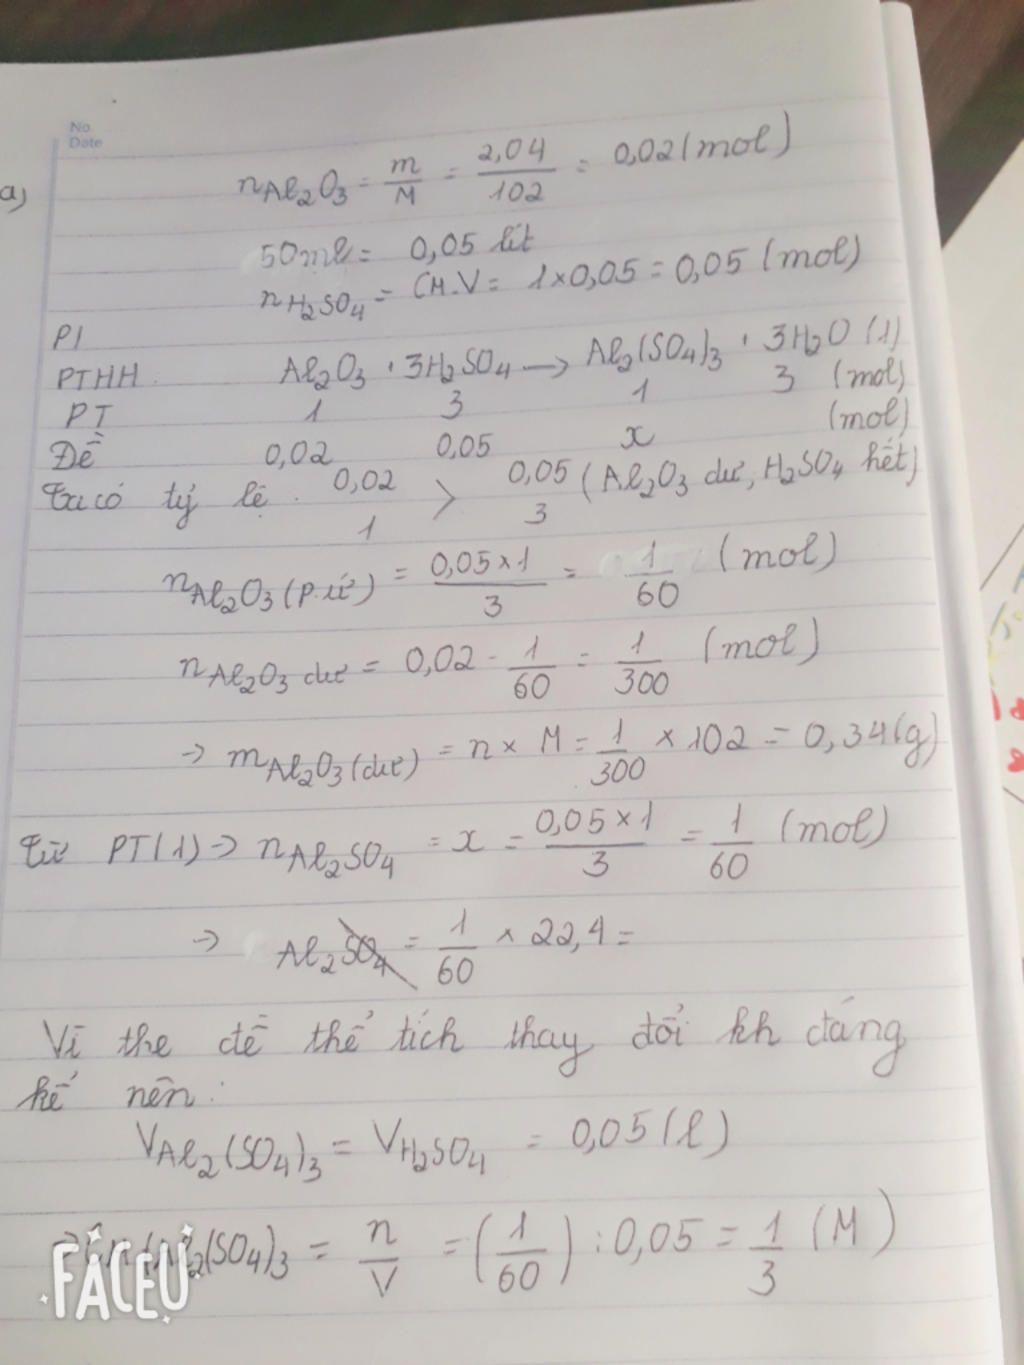 No
Date
a)
nAl₂O₃ = m/M = 2,04/102 = 0,02 (mol)
50ml = 0,05 lít
nH₂SO₄ = CM.V = 1×0,05 = 0,05 (mol)
PI
PTHH: Al₂O₃ + 3H₂SO₄ → Al₂(SO₄)₃ + 3H₂O (1)
PT 1 3 1 3 (mol)
Đề 0,02 0,05 x (mol)
Ta có tỷ lệ: 0,02/1 > 0,05/3 (Al₂O₃ dư, H₂SO₄ hết)
nAl₂O₃ (p.ứ) = 0,05×1/3 = 1/60 (mol)
nAl₂O₃ dư = 0,02 - 1/60 = 1/300 (mol)
→ mAl₂O₃ (dư) = n × M = 1/300 × 102 = 0,34 (g)
Từ PT(1) → nAl₂SO₄ = x = 0,05×1/3 = 1/60 (mol)
→ Al₂SO₄ = 1/60 × 22,4 =
Vì the đề thể tích thay đổi kh đáng
kể nên:
VAl₂(SO₄)₃ = VH₂SO₄ = 0,05 (l)
→ CM Al₂(SO₄)₃ = n/V = (1/60) : 0,05 = 1/3 (M)
FACEU